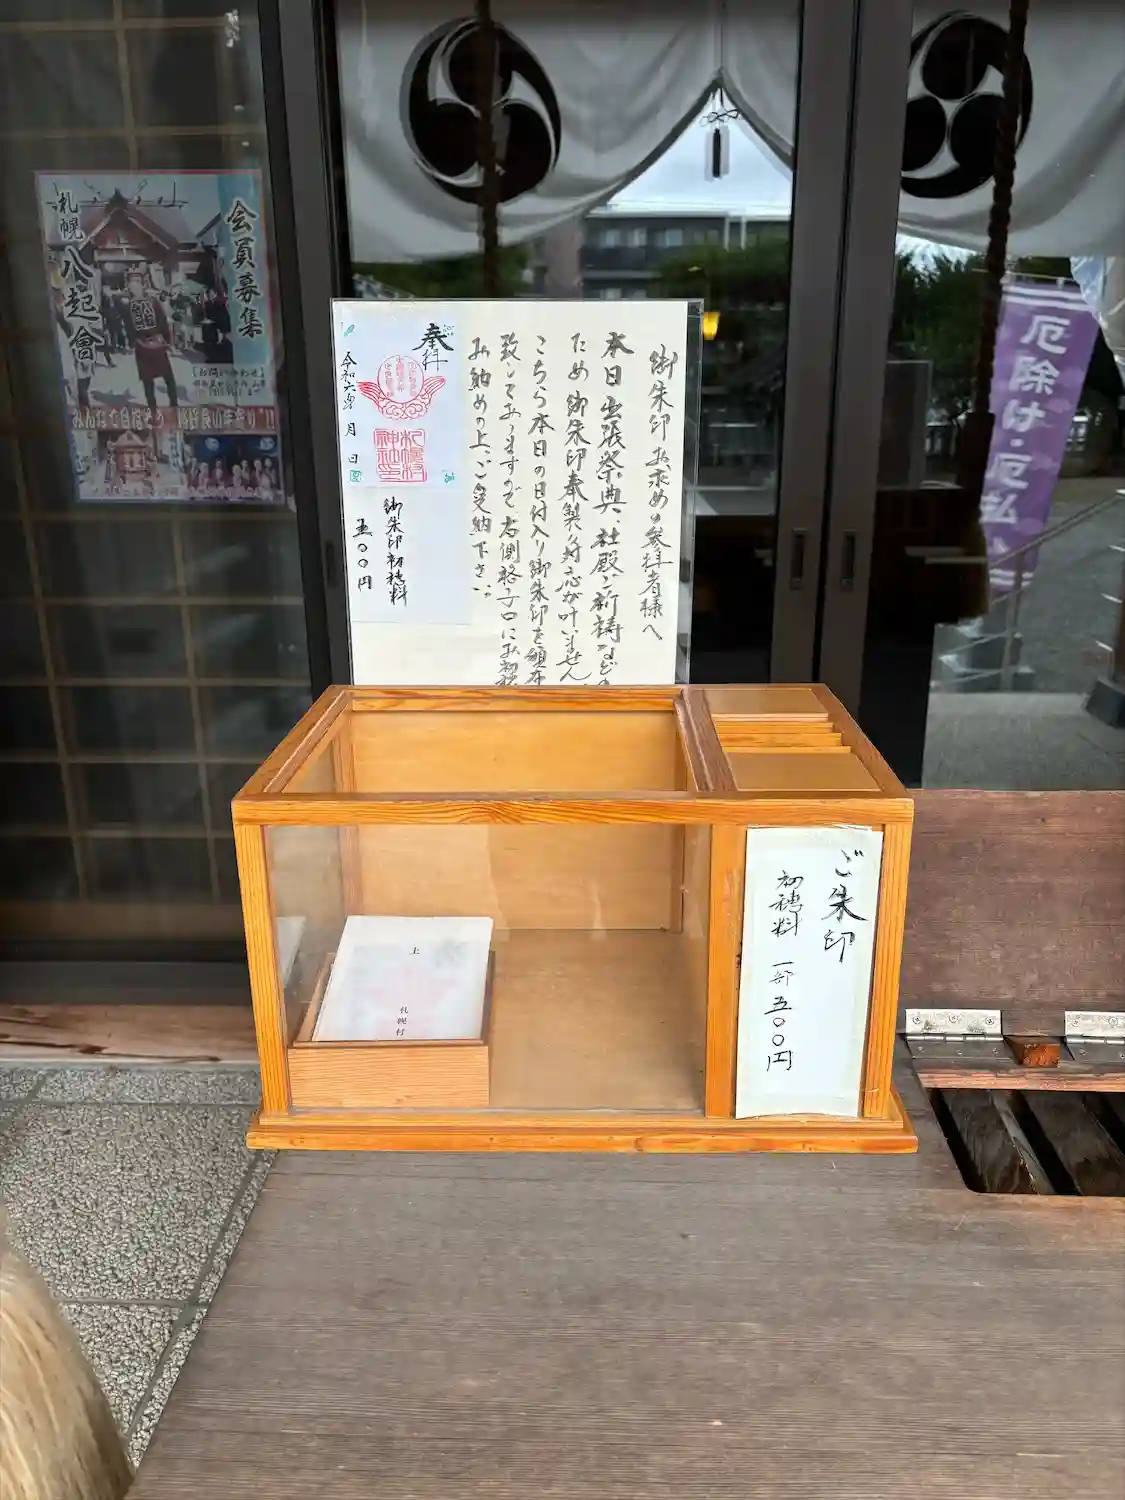 御朱印お求めの参拝者様へ
本日出張祭典、社殿ご祈祷などの
ため御朱印奉製の対応が叶いません
こちら本日の日付入り御朱印を頒布
致してありますので右側格子口にお初穂
お納めの上、ご受納下さい。
奉拝
札幌村
神社印
令和六年 月 日
御朱印初穂料
五〇〇円
ご朱印
初穂料 一部 五〇〇円
上
札幌村
会員募集
札幌八起會
みんなで自信そう
厄除け・厄払い